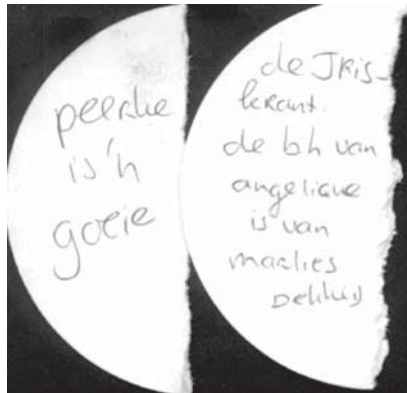 peerke
is 'n
goeie
de JRis-
krant.
de bh van
angelique
is van
marlies
Dekkers